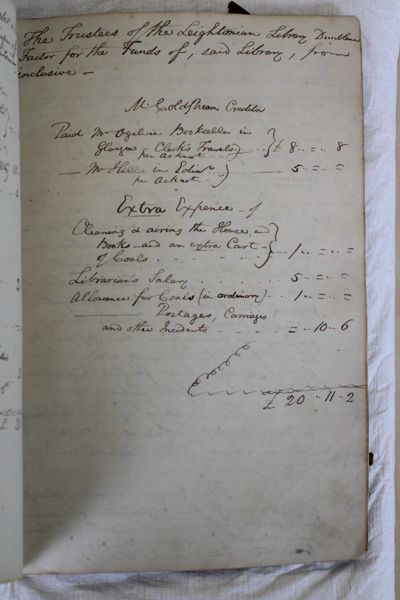 The Trustees of the Leightonian Library Dunblane
Factor for the Funds of, said Library, from
inclusive —
Mr Coldstream Creditor
Paid Mr Ogilvie Bookseller in
Glasgow – Clark's Travels £ 8 .. = .. 8
per acknt
— Mr Hill in Edinr 5 .. = .. =
per acknt
Extra Expence of
Cleaning & airing the House and
Books – and an extra Cart
of Coals 1 .. = .. =
Librarian's Salary 5 .. = .. =
Allowance for Coals (in ordinary) 1 .. = .. =
Postages, Carriages
and other Incidents = .. 10 .. 6
£ 20 .. 11 .. 2